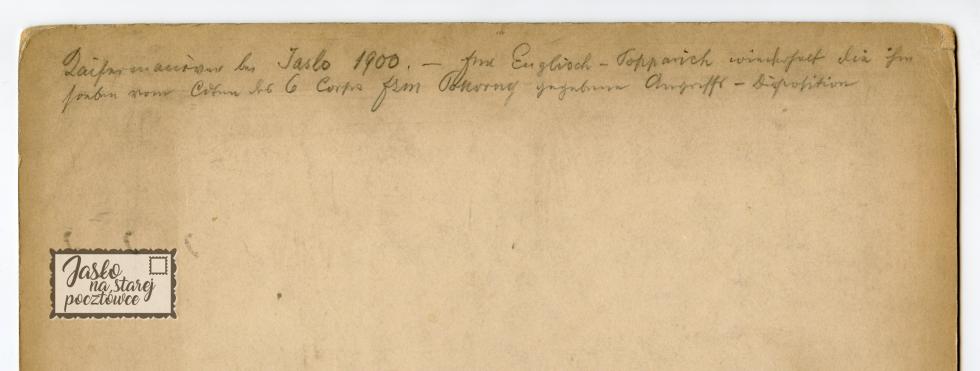 Kaisermanöver bei Jaslo 1900. – FML Englisch-Popparich wiederholt die ihm
soeben vom Cdten des 6 Corps FZM Pokorny gegebene Angriffs-Disposition
Jasło
na starej
pocztówce